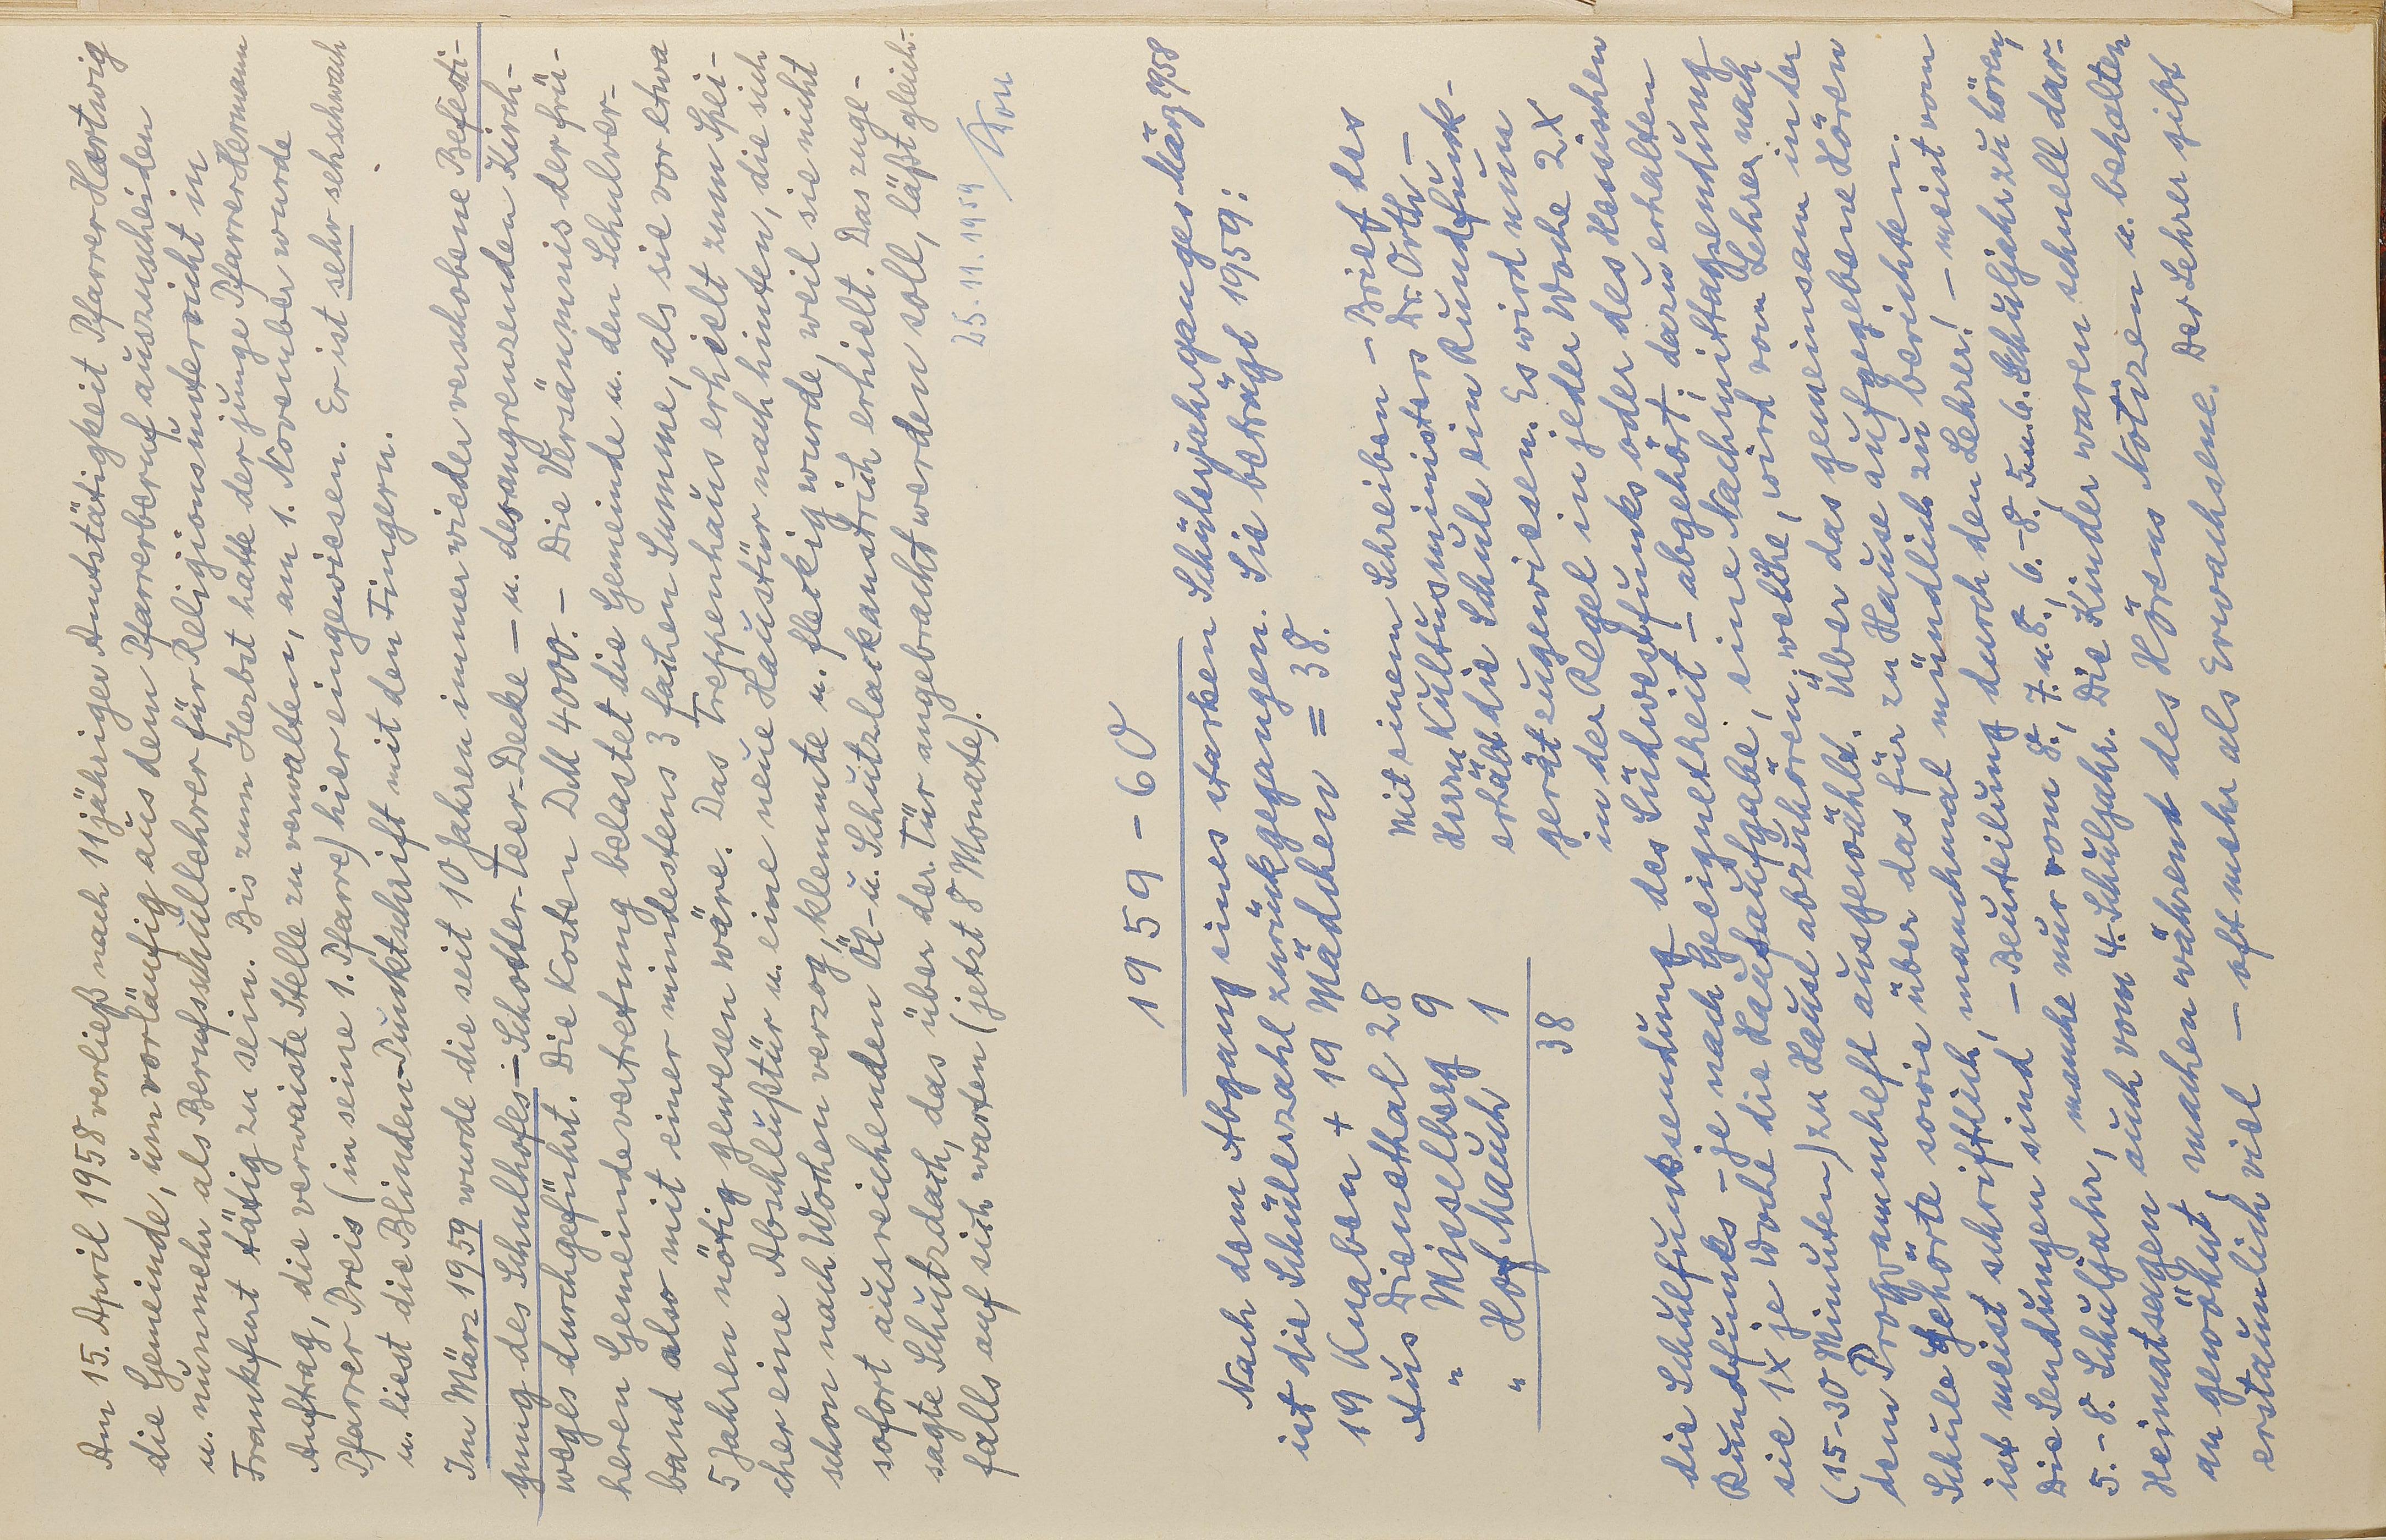 Am 15. April 1958 verließ nach 11jähriger Amtstätigkeit Pfarrer Hartwig
die Gemeinde, um vorläufig aus dem Pfarrerberuf auszuscheiden
u. nunmehr als Berufsschullehrer für Religionsunterricht in
Frankfurt tätig zu sein. Bis zum Herbst hatte der junge Pfarrer Hermann
Auftrag, die verwaiste Stelle zu verwalten, am 1. November wurde
Pfarrer Preis (in seine 1. Pfarre) hier eingewiesen. Er ist sehr sehschwach
u. liest die Blinden-Punktschrift mit den Fingern.
Im März 1959 wurde die seit 10 Jahren immer wieder verschobene Befesti-
gung des Schulhofes – Schotter-Teer-Decke – u. des angrenzenden Kirch-
weges durchgeführt. Die Kosten DM 4000.– Die Versäumnis der frü-
heren Gemeindevertretung belastet die Gemeinde u. den Schulver-
band also mit einer mindestens 3 fachen Summe, als sie vor etwa
5 Jahren nötig gewesen wäre. Das Treppenhaus erhielt zum Spei-
cher eine Abschlußtür u. eine neue Haustür nach hinten, die sich
schon nach Wochen verzog, klemmte u. fleckig wurde, weil sie nicht
sofort ausreichenden Öl- u. Schutzlackanstrich erhielt. Das zuge-
sagte Schutzdach, das über der Tür angebracht werden soll, läßt gleich-
falls auf sich warten (jetzt 8 Monate).
25.11.1959
1959 – 60
Nach dem Abgang eines starken Schülerjahrganges März 1958
ist die Schülerzahl zurückgegangen. Sie beträgt 1959:
19 Knaben + 19 Mädchen = 38.
Aus Dienethal 28
" Misselberg 9
" Hof Mauch 1
38
Mit einem Schreiben – Brief des
Herrn Kultusministers Dr. Orth –
erhält die Schule ein Rundfunk-
gerät zugewiesen. Es wird nun
in der Regel in jeder Woche 2x
die Schulfunksendung des Südwestfunks oder des Hessischen
Rundfunks – je nach Geeignetheit – abgehört. dazu erhalten
sie 1x je Woche die Hausaufgabe, eine Nachmittagsendung
(15-30 Minuten) zu Hause abzuhören, welche, wird vom Lehrer nach
dem Programmheft ausgewählt. Über das gemeinsam in der
Schule Gehörte sowie über das für zu Hause aufgegebene Hören
ist meist schriftlich, manchmal mündlich zu berichten.
Die Sendungen sind – Beurteilung durch den Lehrer! – meist vom
5. – 8. Schuljahr, manche nur vom 8., 7. u. 8., 6. – 8., 5. u. 6. Schuljahr zu hören,
Heimatsagen auch vom 4. Schuljahr. Die Kinder waren schnell dar-
an gewöhnt, während des Hörens Notizen zu machen u. behalten
erstaunlich viel – oft mehr als Erwachsene. Der Lehrer gibt